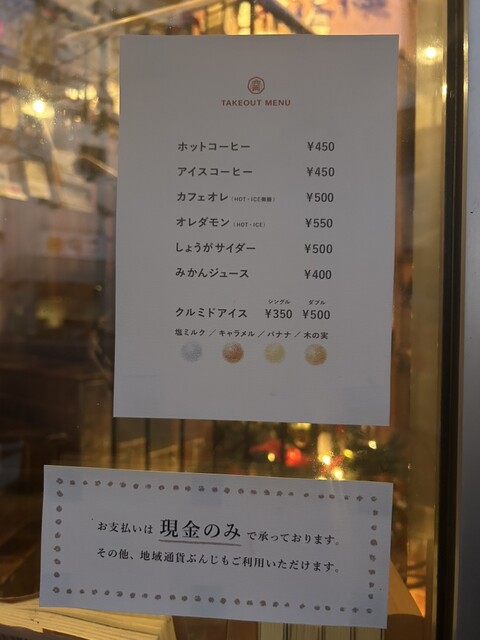 TAKEOUT MENU
ホットコーヒー ¥450
アイスコーヒー ¥450
カフェオレ (HOT・ICE ¥500
オレダモン (HOT・ICE) ¥550
しょうがサイダー ¥500
みかんジュース ¥400
シングル ダブル
クルミドアイス ¥350 ¥500
塩ミルク / キャラメル / バナナ / 木の実
お支払いは 現金のみ で承っております。
その他、地域通貨ぶんじもご利用いただけます。